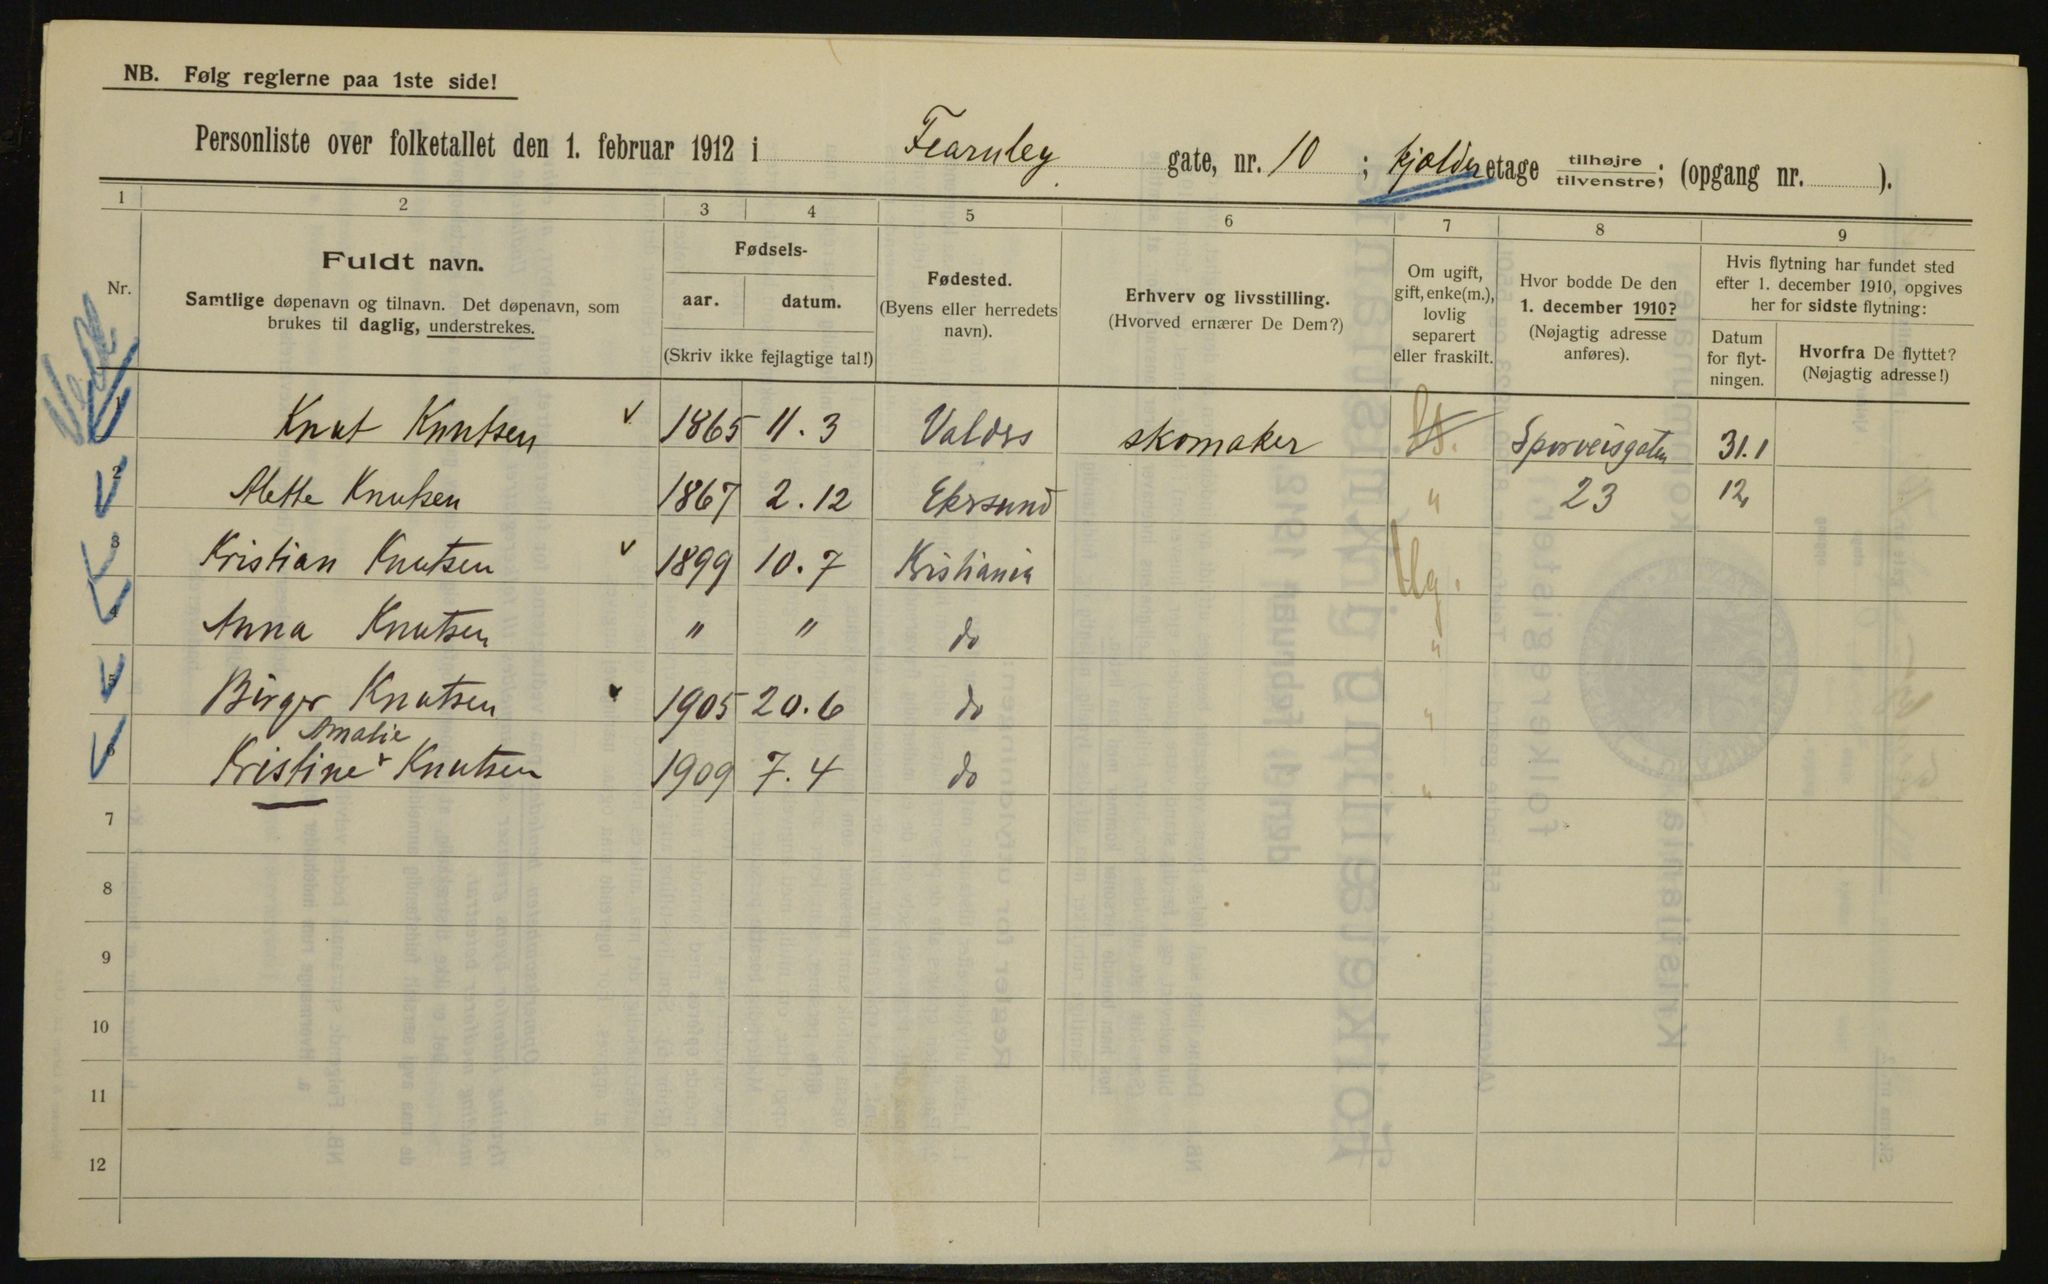 NB. Følg reglerne paa 1ste side!
Personliste over folketallet den 1. februar 1912 i Fearnley gate, nr. 10 ; kjælder etage tilhøjre tilvenstre; (opgang nr. ).
1 2 3 4 5 6 7 8 9
Nr.
Fuldt navn.
Samtlige døpenavn og tilnavn. Det døpenavn, som
brukes til daglig, understrekes.
Fødsels-
aar. datum.
(Skriv ikke fejlagtige tal!)
Fødested.
(Byens eller herredets
navn).
Erhverv og livsstilling.
(Hvorved ernærer De Dem?)
Om ugift,
gift, enke(m.),
lovlig
separert
eller fraskilt.
Hvor bodde De den
1. december 1910?
(Nøjagtig adresse
anføres).
Hvis flytning har fundet sted
efter 1. december 1910, opgives
her for sidste flytning:
Datum
for flyt-
ningen.
Hvorfra De flyttet?
(Nøjagtig adresse!)
1 Knut Knutsen v 1865 11. 3 Valdrs skomaker Sporveisgaten 31.1
2 Alette Knutsen 1867 2. 12 Ekrsund " 23 12
3 Kristian Knutsen v 1899 10. 7 Kristiania Ug.
4 Anna Knutsen " " do "
5 Birger Knutsen v 1905 20. 6 do "
Amalie
6 Kristine v Knutsen 1909 7. 4 do "
7
8
9
10
11
12